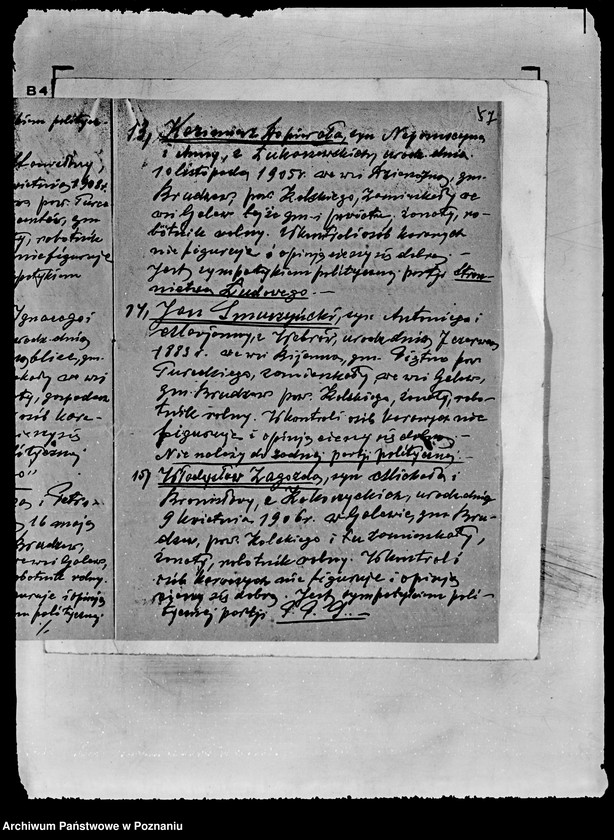 B4
57
13, Kazimierz Kopiwoła, syn Nepomucyna
i Anny, z Łukaszewskich, urodz. dnia
10 listopada 1905 r. we wsi gm.
Brudzew, pow. Kolskiego, zamieszkały we
wsi Galew tejże gm. i powiatu, żonaty, ro-
botnik rolny. W kontroli osób karanych
nie figuruje i opinją cieszy się dobrą. -
Jest sympatykiem politycznej partji Stron-
nictwa Ludowego. -
14, Jan Smarzyński, syn Antoniego i
Marjanny, z urodz. dnia 7 czerwca
1883 r. we wsi gm. pow.
Tureckiego, zamieszkały we wsi Galew,
gm. Brudzew pow. Kolskiego, żonaty, robo-
tnik rolny. W kontroli osób karanych nie
figuruje i opinją cieszy się dobrą. -
Nie należy do żadnej partji politycznej. -
15) Władysław Zagozda, syn Michała i
Bronisławy, z urodz. dnia
9 kwietnia 1906 r. w Galewie, gm. Bru-
dzew, pow. Kolskiego i tu zamieszkały,
żonaty, robotnik rolny. W kontroli
osób karanych nie figuruje i opinją
cieszy się dobrą. Jest sympatykiem poli-
tycznej partji P.P.S. -
polityce-
1908 r.
pow. Turec
gm
robotnik
nie figuruje
Ignacego i
urodz. dnia
gm.
we wsi
gospodarz
osób kara-
cieszy się
i Petro-
16 maja
Brudzew,
we wsi Galew,
robotnik rolny.
figuruje i opinją
politycznej
Archiwum Państwowe w Poznaniu